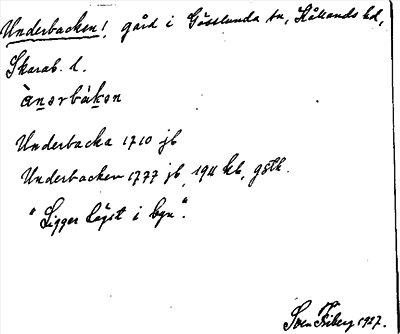 Underbacken! gård i Gösslunda sn, Kållands hd,
Skarab. l.
ànərbákən
Underbacka 1710 jb
Underbacken 1777 jb, 1911 kb, gstk.
"Ligger högst i byn".
Sven Friberg 1927.